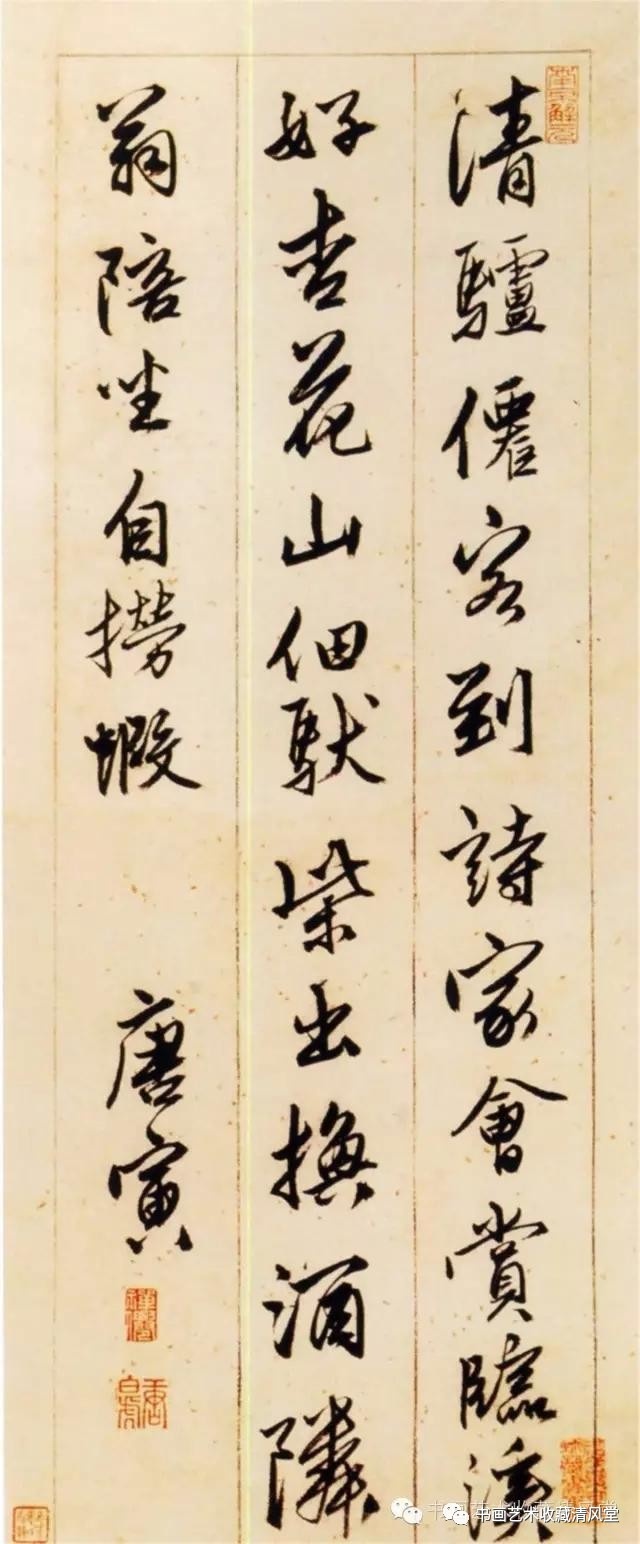 清驢僊客到詩家會賞臨溪
好杏花山佃馱柴出換酒隣
翁陪坐自撈蝦
唐寅
南京解元
唐白虎
书画艺术收藏清风堂